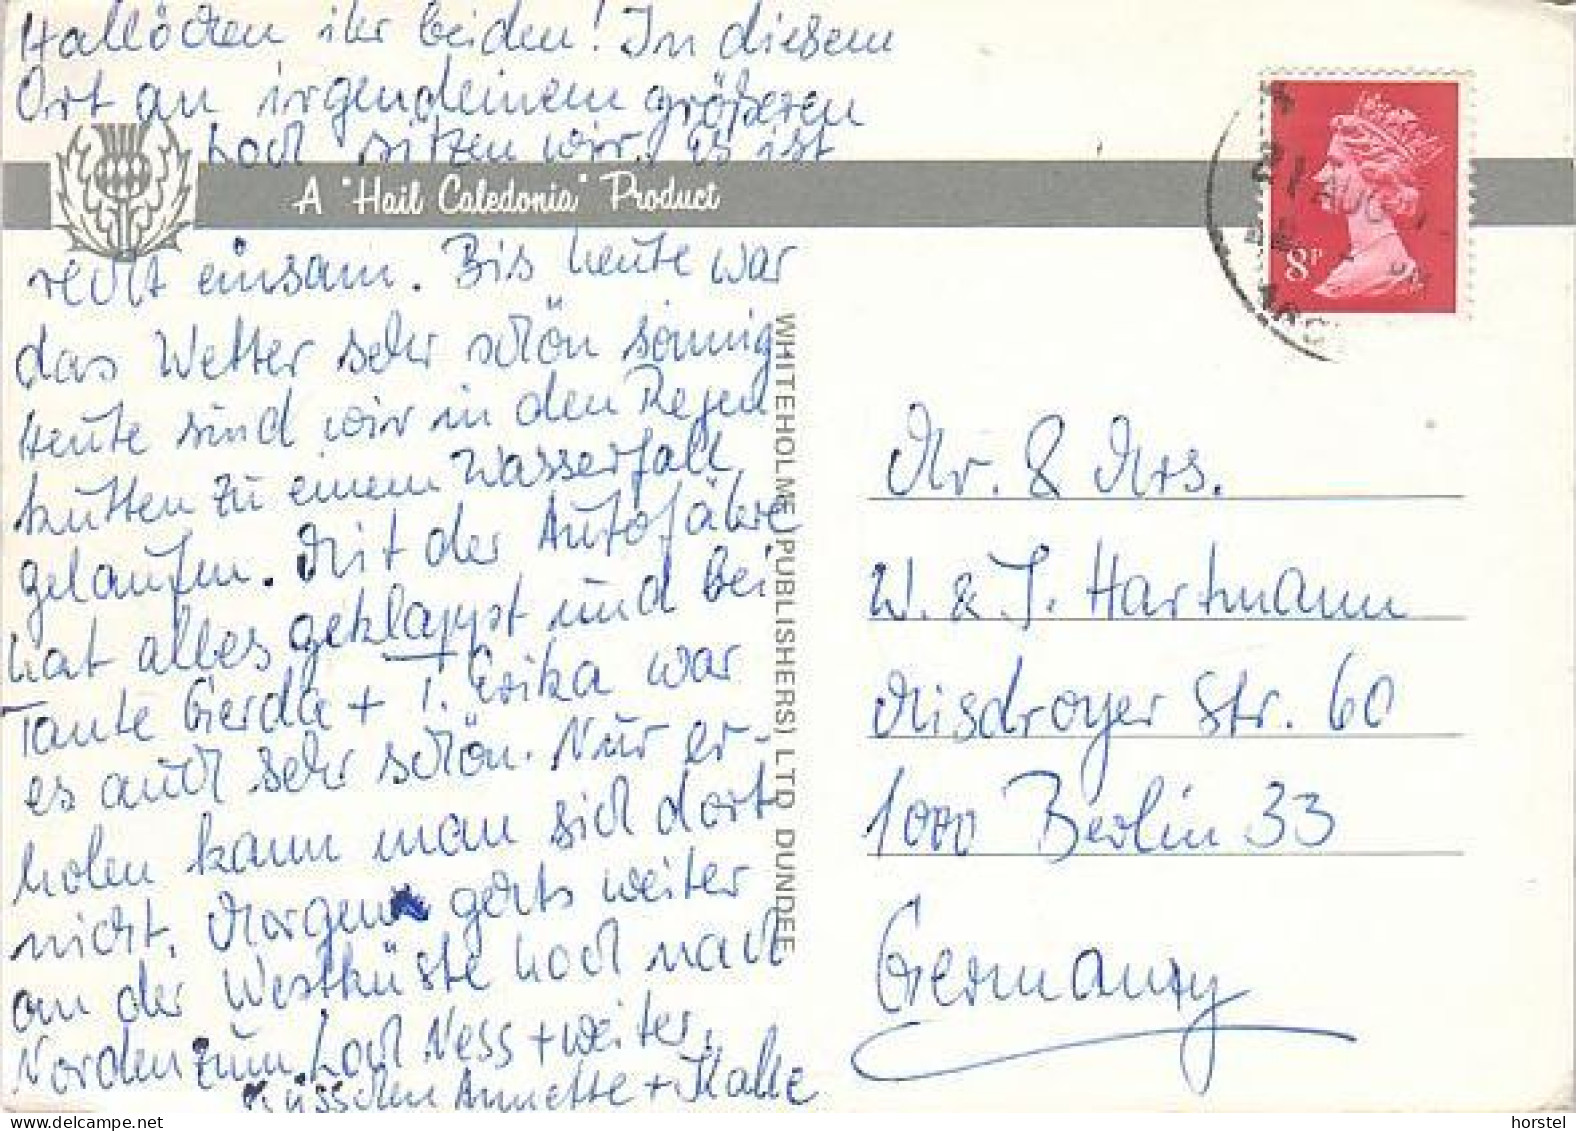 Hallöchen ihr beiden! In diesem
Ort an irgendeinem größeren
Loch sitzen wir. Es ist
A "Hail Caledonia" Product
recht einsam. Bis heute war
das Wetter sehr schön sonnig
Heute sind wir in den Regen
kutten zu einem Wasserfall
gelaufen. Mit der Autofähre
hat alles geklappt und bei
Tante Gerda + T. Erika war
es auch sehr schön. Nur er-
holen kann man sich dort
nicht. Morgen gehts weiter
an der Westküste hoch nach
Norden zum Loch Ness + weiter.
Küsschen Annette + Kalle
WHITEHOLME (PUBLISHERS) LTD DUNDEE
8P
21 AUG
Mr. & Mrs.
W. & J. Hartmann
Misdroyer Str. 60
1000 Berlin 33
Germany
horstel